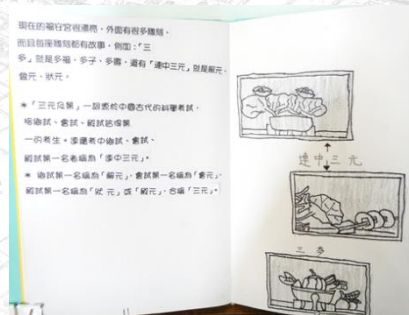 現在的福安宮很漂亮，外面有很多雕刻，
而且每座雕刻都有故事，例如：「三
多」就是多福、多子、多壽，還有「連中三元」就是解元、
會元、狀元。
*「三元及第」一詞源於中國古代的科舉考試，
指鄉試、會試、殿試皆得第
一的考生。準備考中鄉試、會試、
殿試第一名者稱為「連中三元」。
* 鄉試第一名稱為「解元」，會試第一名稱為「會元」，
殿試第一名稱為「狀元」或「殿元」，合稱「三元」。
連中三元
三多
11